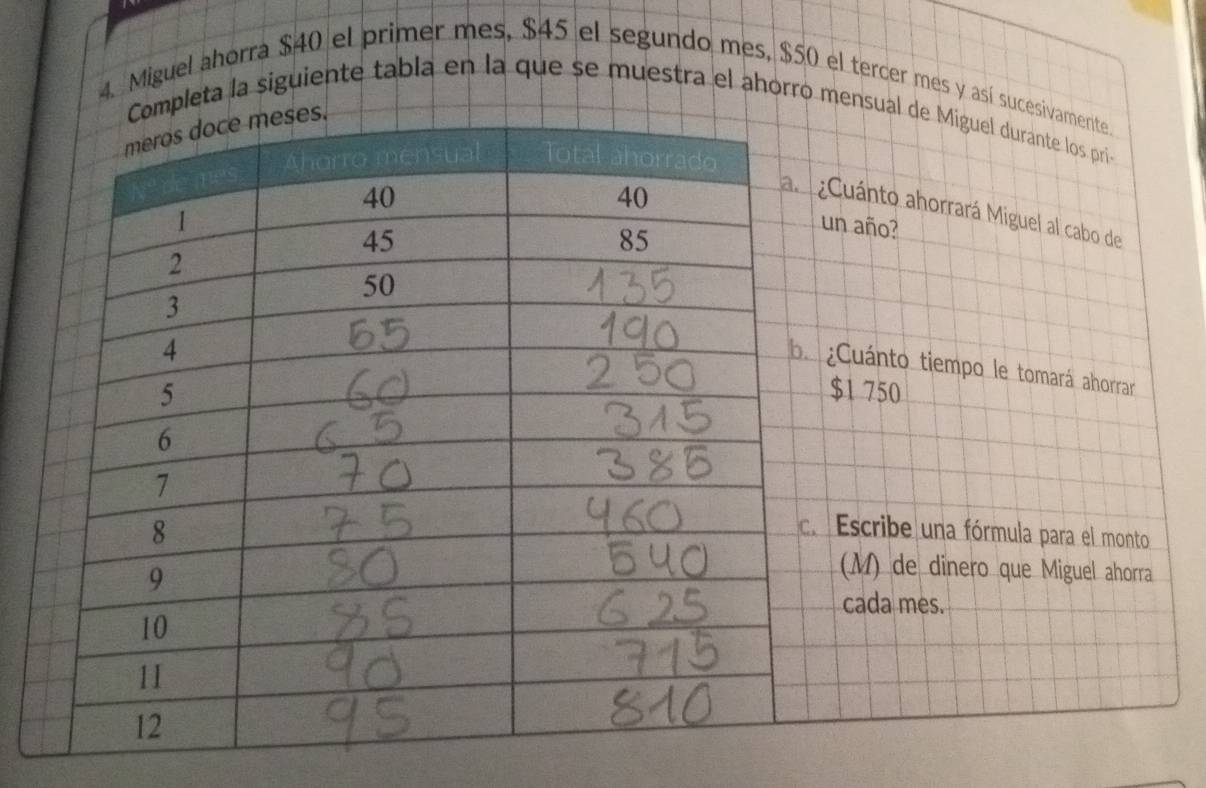 4. Miguel ahorra $40 el primer mes, $45 el segundo mes, $50 el tercer mes y así sucesivamente.
Completa la siguiente tabla en la que se muestra el ahorro mensual de Miguel durante los pri-
meros doce meses.
N° de mes Ahorro mensual Total ahorrado
1 40 40
2 45 85
3 50 135
4 55 190
5 60 250
6 65 315
7 70 385
8 75 460
9 80 540
10 85 625
11 90 715
12 95 810
a. ¿Cuánto ahorrará Miguel al cabo de
un año?
b. ¿Cuánto tiempo le tomará ahorrar
$1 750
c. Escribe una fórmula para el monto
(M) de dinero que Miguel ahorra
cada mes.